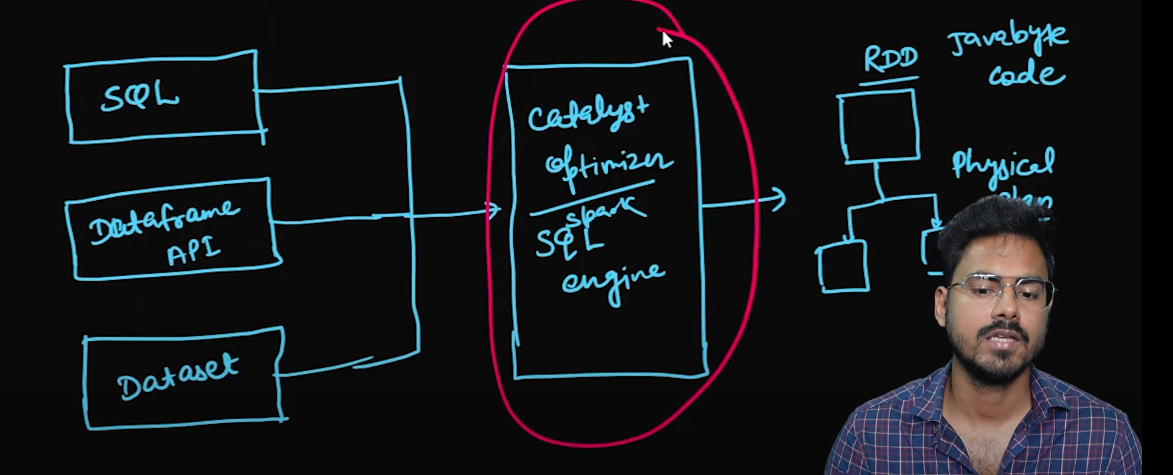 SQL
Dataframe
API
Dataset
Catalyst
optimizer
Spark
SQL
engine
RDD
Javabyte
code
Physical